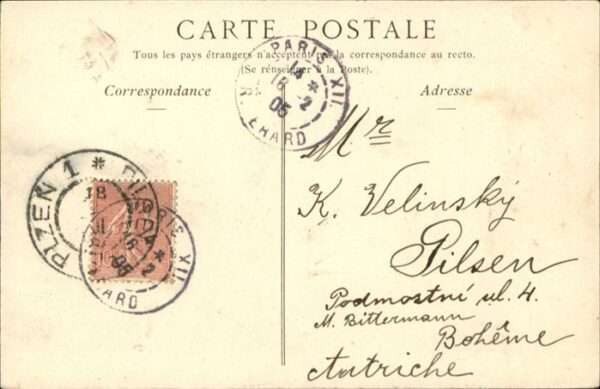 CARTE POSTALE
Tous les pays étrangers n'acceptent pas la correspondance au recto.
(Se renseigner à la Poste).
Correspondance
Adresse
PARIS XII
14 *
16 2
05
R. ERARD
PLZEN 1 *
18
XII
16 2
05
ERARD
Mr
K. Velinský
Pilsen
Podmostní ul. 4.
M. Bittermann
Bohême
Autriche